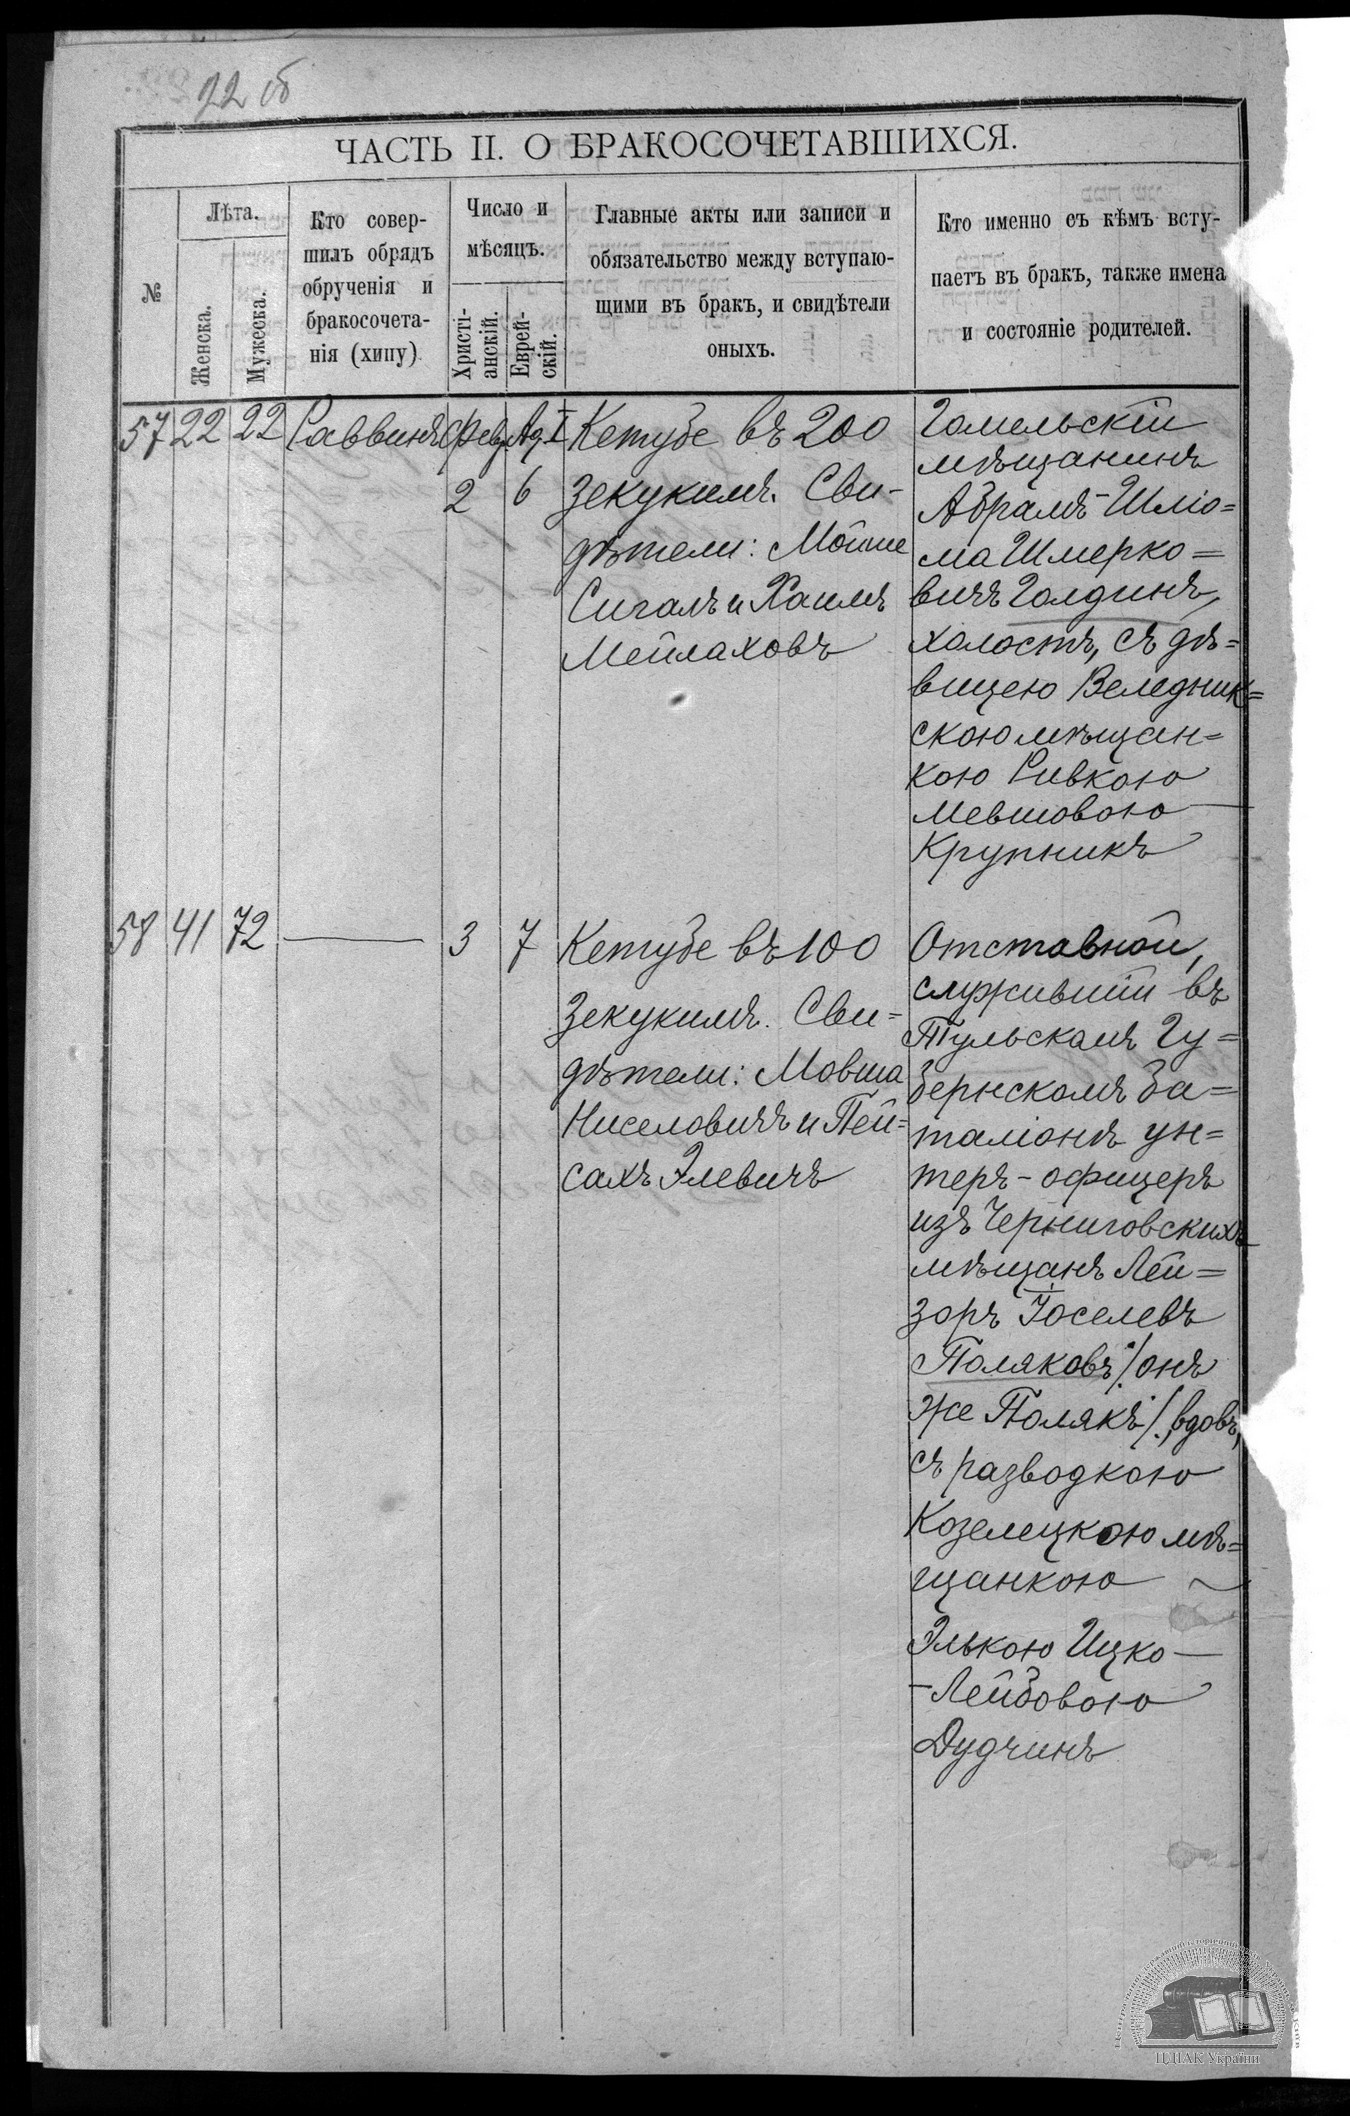 22 об
ЧАСТЬ II. О БРАКОСОЧЕТАВШИХСЯ.
№
Лѣта.
Женска.
Мужеска.
Кто совер-
шилъ обрядъ
обрученія и
бракосочета-
нія (хипу)
Число и
мѣсяцъ.
Христі-
анскій.
Еврей-
скій.
Главные акты или записи и
обязательство между вступаю-
щими въ бракъ, и свидѣтели
оныхъ.
Кто именно съ кѣмъ всту-
паетъ въ бракъ, также имена
и состояніе родителей.
57 22 22 Раввинъ Февр. Ад. I
2 6
Кетубе въ 200
Зекукимъ. Сви-
дѣтели: Мойше
Сигалъ и Хаимъ
Мейлаховъ
Гомельскій
мѣщанинъ
Абрамъ-Шлío=
ма Шмерко=
вичъ Голдинъ,
холостъ, съ дѣ=
вицею Веледник=
скою мѣщан=
кою Ривкою
Мевшовою
Крупникъ
58 41 72 — 3 7
Кетубе въ 100
Зекукимъ. Сви=
дѣтели: Мовша
Ниселовичъ и Пей=
сахъ Элевичъ
Отставной,
служившій въ
Тульскамъ Гу=
бернскомъ ба=
таліонѣ ун=
теръ-офицеръ
изъ Черниговскихъ
мѣщанъ Лей=
зоръ Іоселевъ
Поляковъ /онъ
же Полякъ/, вдовъ,
съ разводкою
Козелецкою мѣ=
щанкою
Элькою Ицко—
-Лейбовою
Дудчинъ
ЦДІАК України